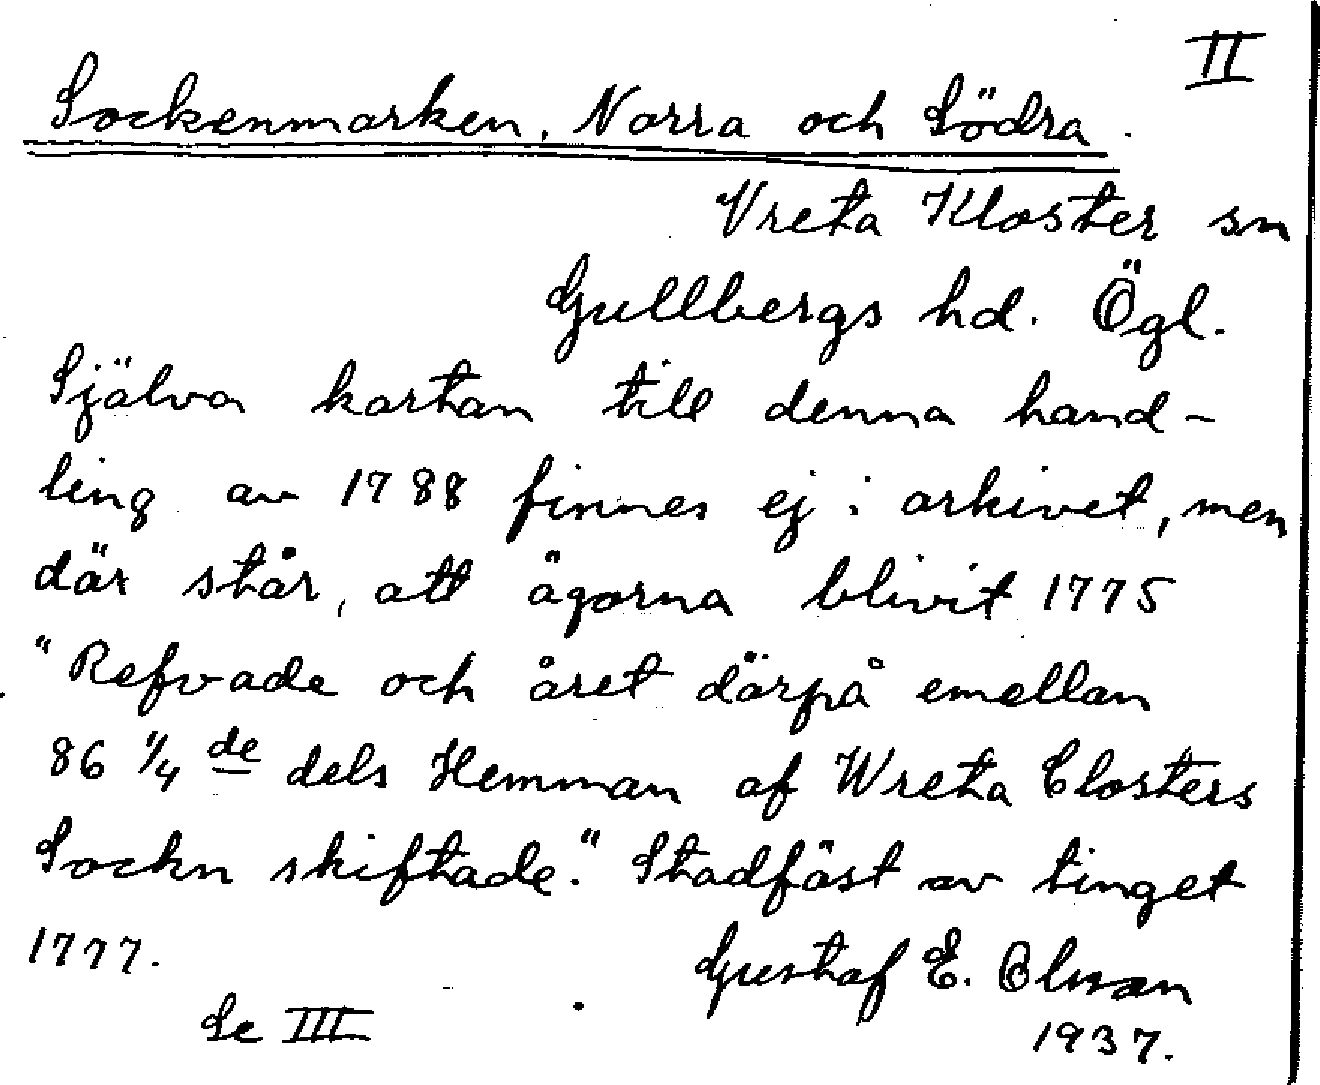 II
Sockenmarken, Norra och Södra.
Vreta Kloster sn
Gullbergs hd. Ögl.
Själva kartan till denna hand-
ling av 1788 finnes ej i arkivet, men
där står, att ägorna blivit 1775
"Refvade och året därpå emellan
86 1/4 de dels Hemman af Wreta Closters
Sockn skiftade." Stadfäst av tinget
1777.
Gustaf E. Olsson
Se III
1937.